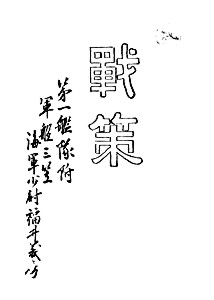 戰策
第一艦隊附
軍艦三笠
海軍少尉福井義房